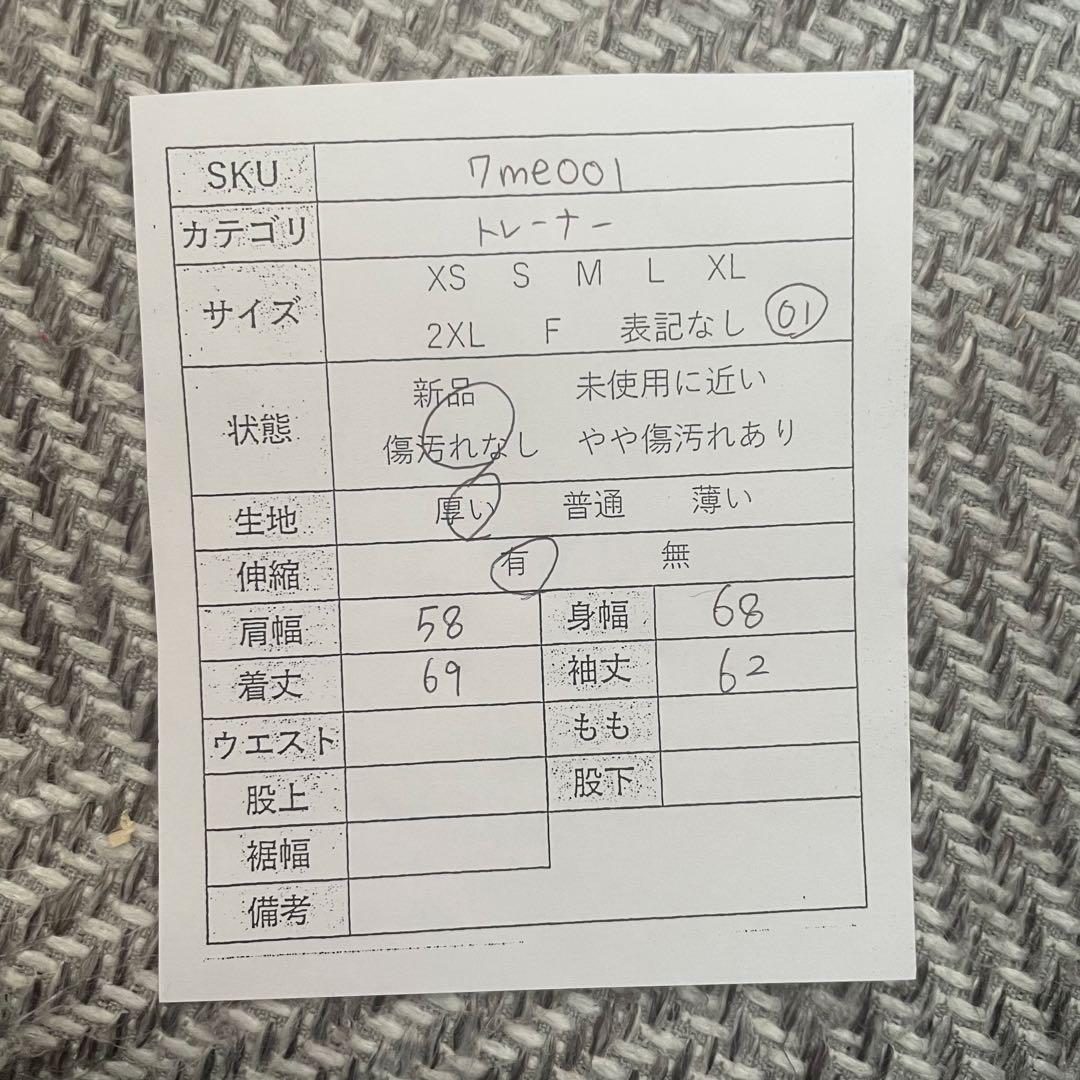 SKU 7me001
カテゴリ トレーナー
サイズ XS S M L XL
2XL F 表記なし 01
状態 新品 未使用に近い
傷汚れなし やや傷汚れあり
生地 厚い 普通 薄い
伸縮 有 無
肩幅 58 身幅 68
着丈 69 袖丈 62
ウエスト もも
股上 股下
裾幅
備考